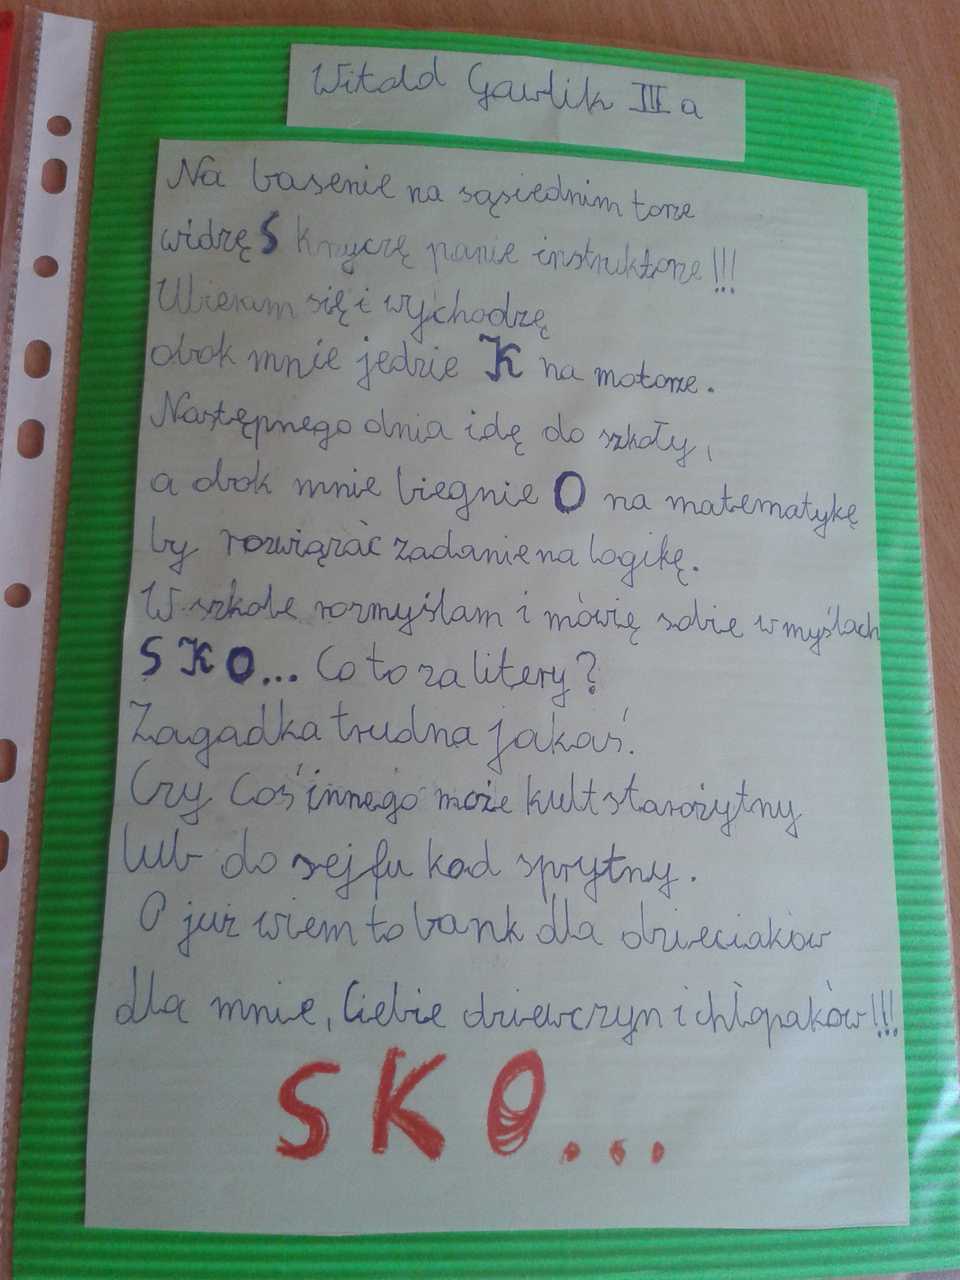 Witold Gawlik III a
Na basenie na sąsiednim torze
widzę S krzyczę panie instruktorze!!!
Ubieram się i wychodzę
obok mnie jedzie K na motorze.
Następnego dnia idę do szkoły,
a obok mnie biegnie O na matematykę
by rozwiązać zadanie na logikę.
W szkole rozmyślam i mówię sobie w myślach
S K O... Co to za litery?
Zagadka trudna jakaś.
Czy coś innego może kult starożytny
lub do sejfu kod sprytny.
O już wiem to bank dla dzieciaków
dla mnie, Ciebie dziewczyn i chłopaków!!!
SKO...